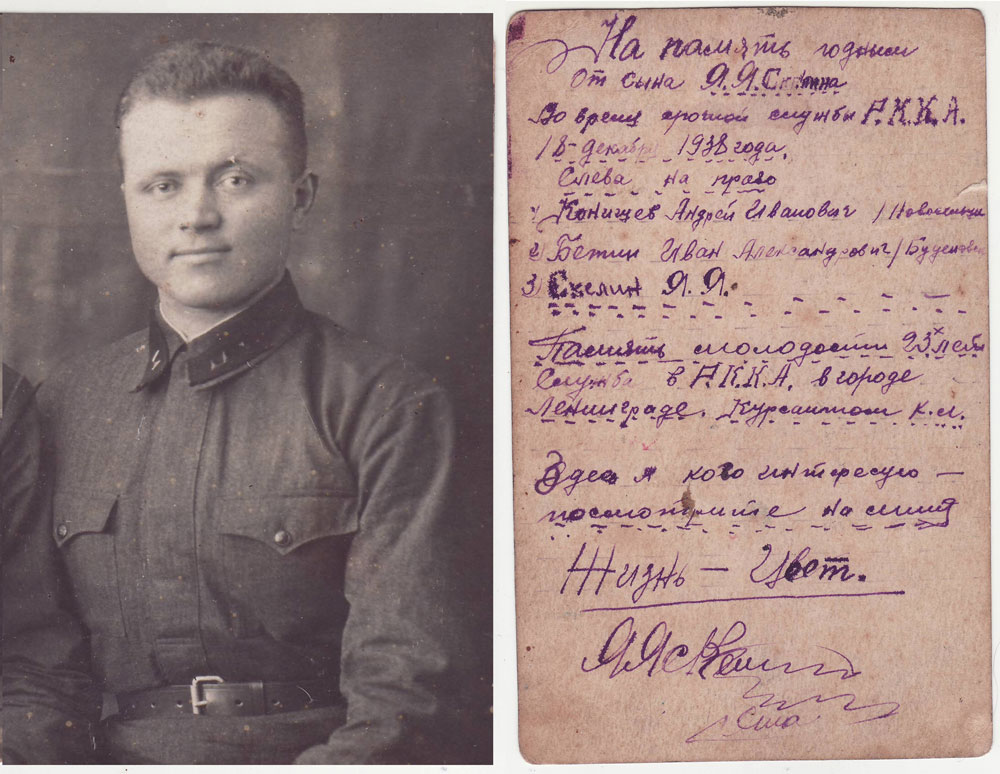 На память родным
От сына Я.Я. Скелина
Во время срочной службы Р.К.К.А.
18 декабря 1938 года.
Слева на право
1) Конищев Андрей Иванович /
2) Бетин Иван Александрович /
3) Скелин Я. Я.
Память молодости 23х лет
Служба в Р.К.К.А. в городе
Ленинграде. Курсантом
Здеся кого интересую —
посмотрите на
Жизнь — Цвет.
ЯЯСкелин